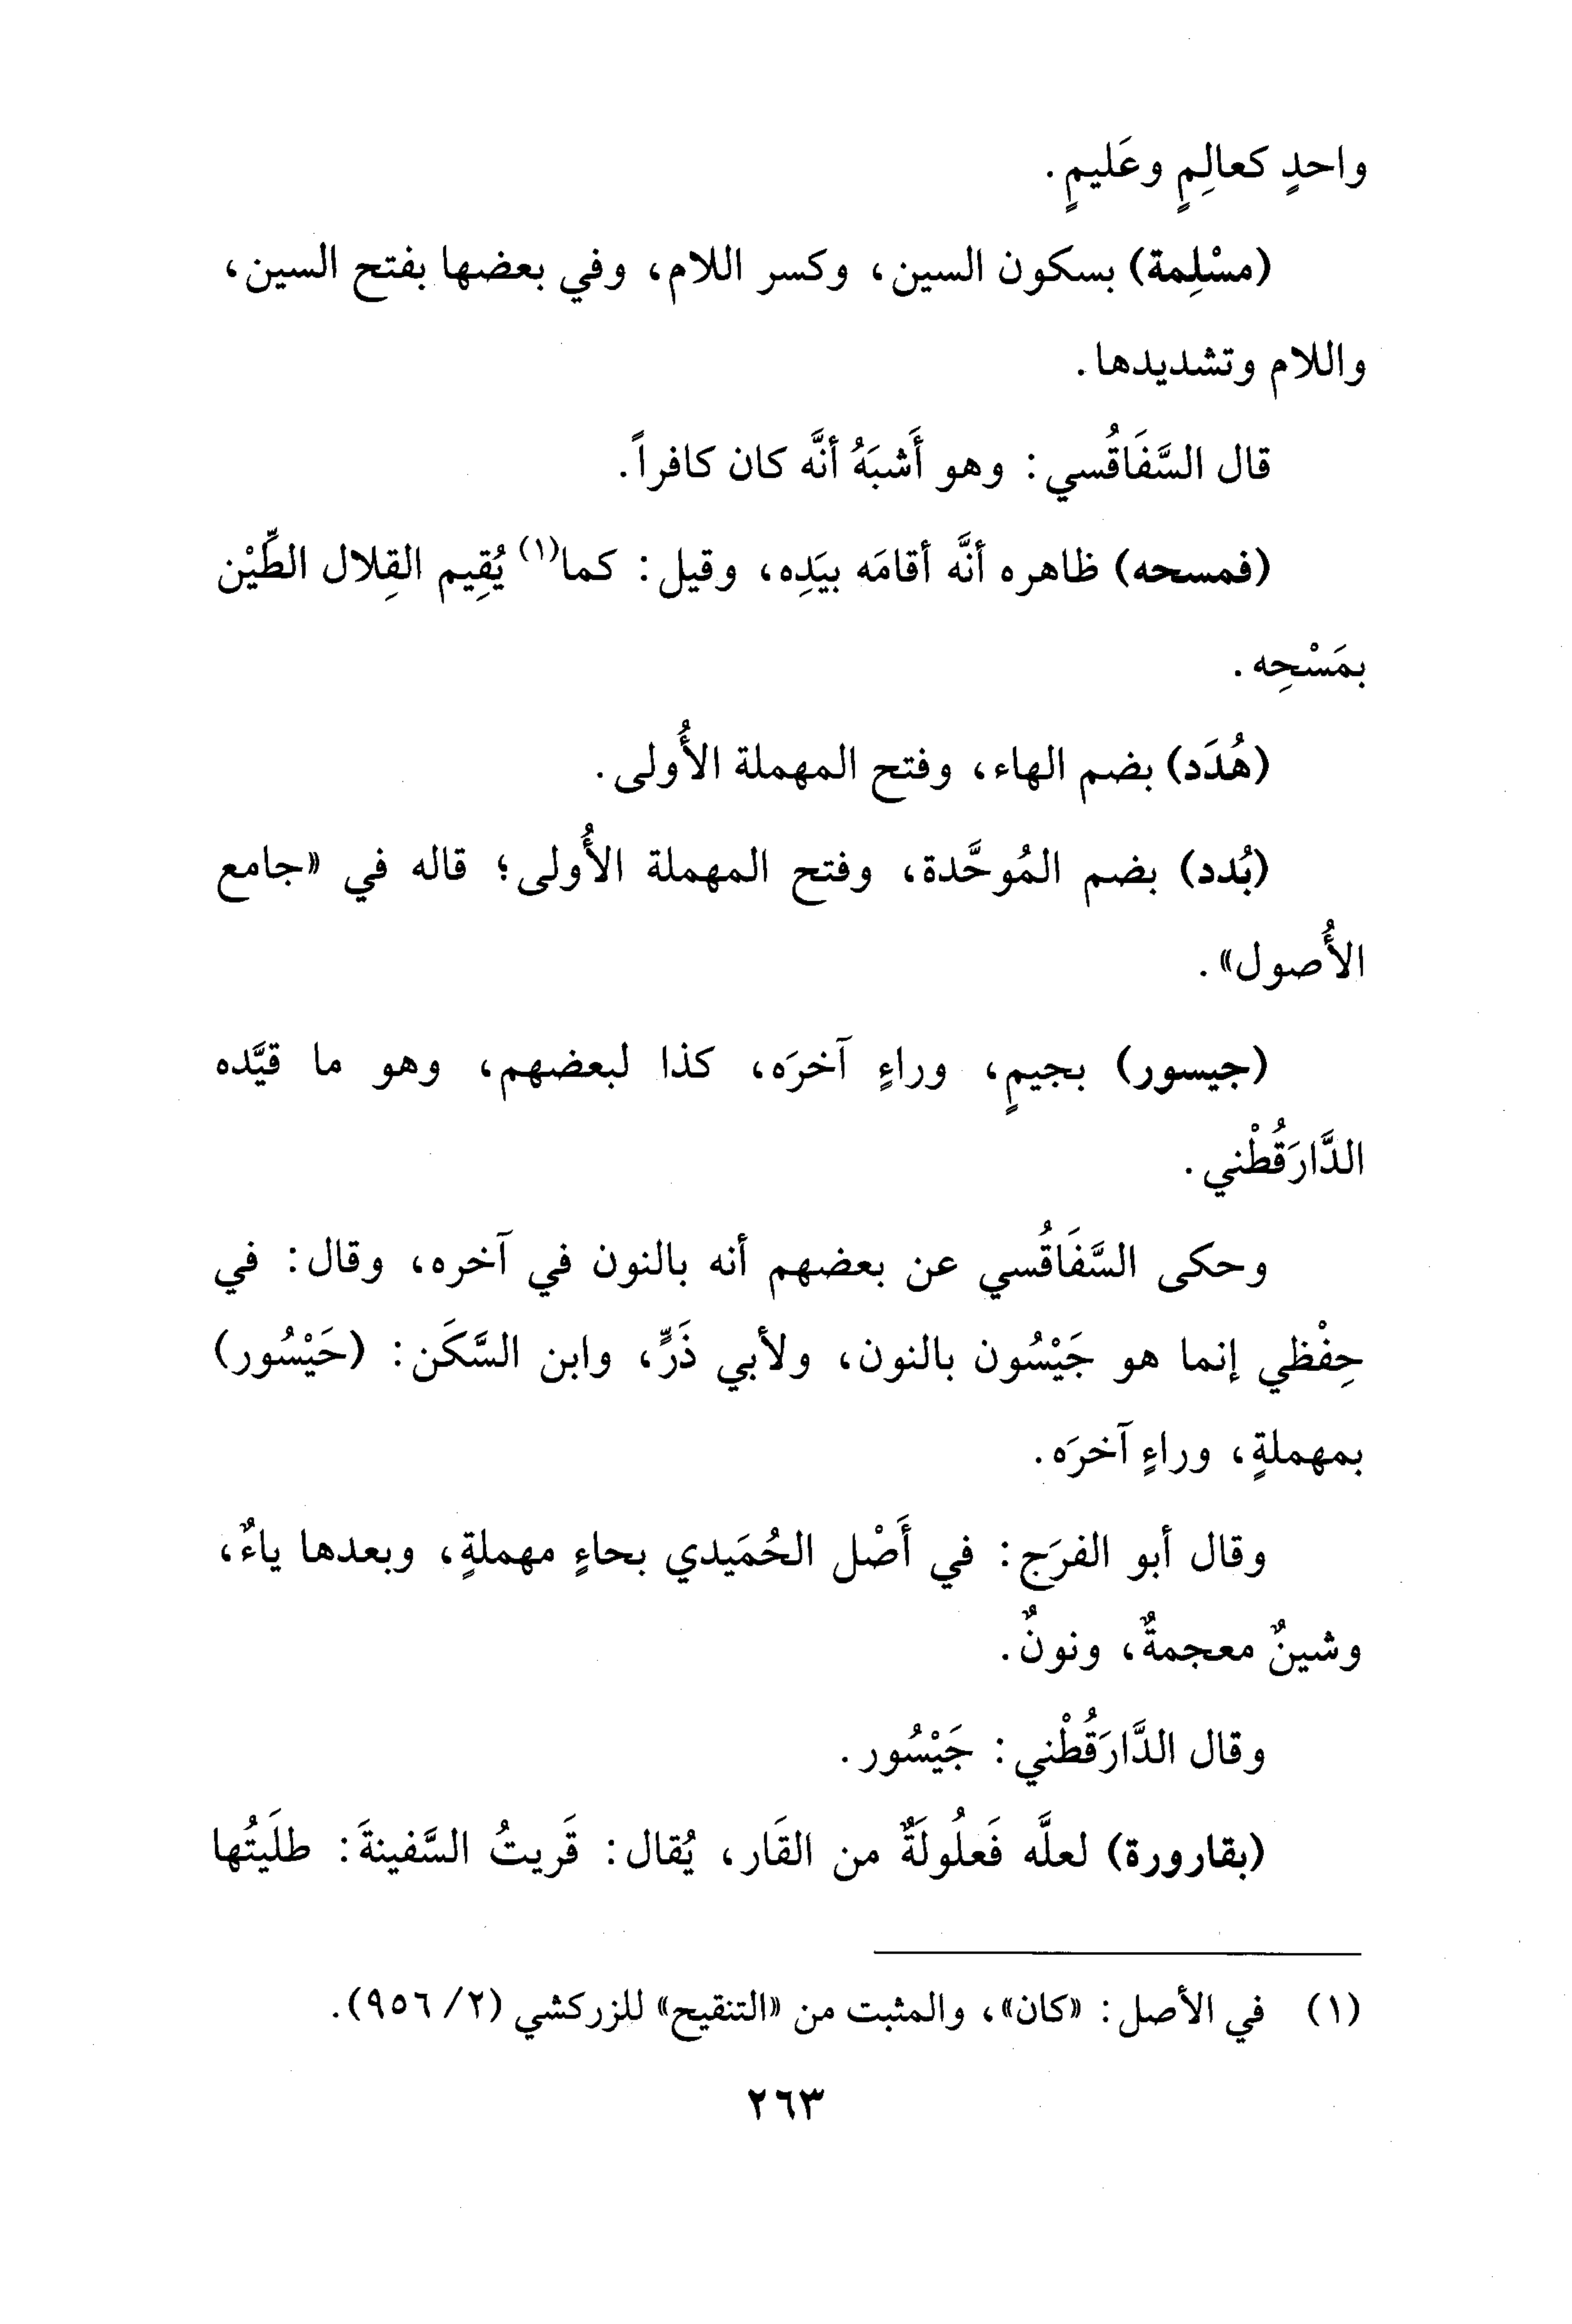 واحدٍ كعالِمٍ وعَليمٍ.
(مسْلِمة) بسكون السين، وكسر اللام، وفي بعضها بفتح السين،
واللام وتشديدها.
قال السَّفَاقُسي: وهو أَشبَهُ أنَّه كان كافراً.
(فمسحه) ظاهره أنَّه أقامَه بيَدِه، وقيل: كما(١) يُقِيم القِلال الطِّيْن
بمَسْحِه.
(هُدَد) بضم الهاء، وفتح المهملة الأُولى.
(بُدد) بضم المُوحَّدة، وفتح المهملة الأُولى؛ قاله في «جامع
الأُصول».
(جيسور) بجيمٍ، وراءٍ آخرَه، كذا لبعضهم، وهو ما قيَّده
الدَّارَقُطْني.
وحكى السَّفَاقُسي عن بعضهم أنه بالنون في آخره، وقال: في
حِفْظي إنما هو جَيْسُون بالنون، ولأبي ذَرٍّ، وابن السَّكَن: (حَيْسُور)
بمهملةٍ، وراءٍ آخرَه.
وقال أبو الفرَج: في أَصْل الحُمَيدي بحاءٍ مهملةٍ، وبعدها ياءٌ،
وشينٌ معجمةٌ، ونونٌ.
وقال الدَّارَقُطْني: جَيْسُور.
(بقارورة) لعلَّه فَعلُولَةٌ من القَار، يُقال: قَريتُ السَّفينةَ: طلَيتُها
(١) في الأصل: «كان»، والمثبت من «التنقيح» للزركشي (٢/ ٩٥٦).
٢٦٣